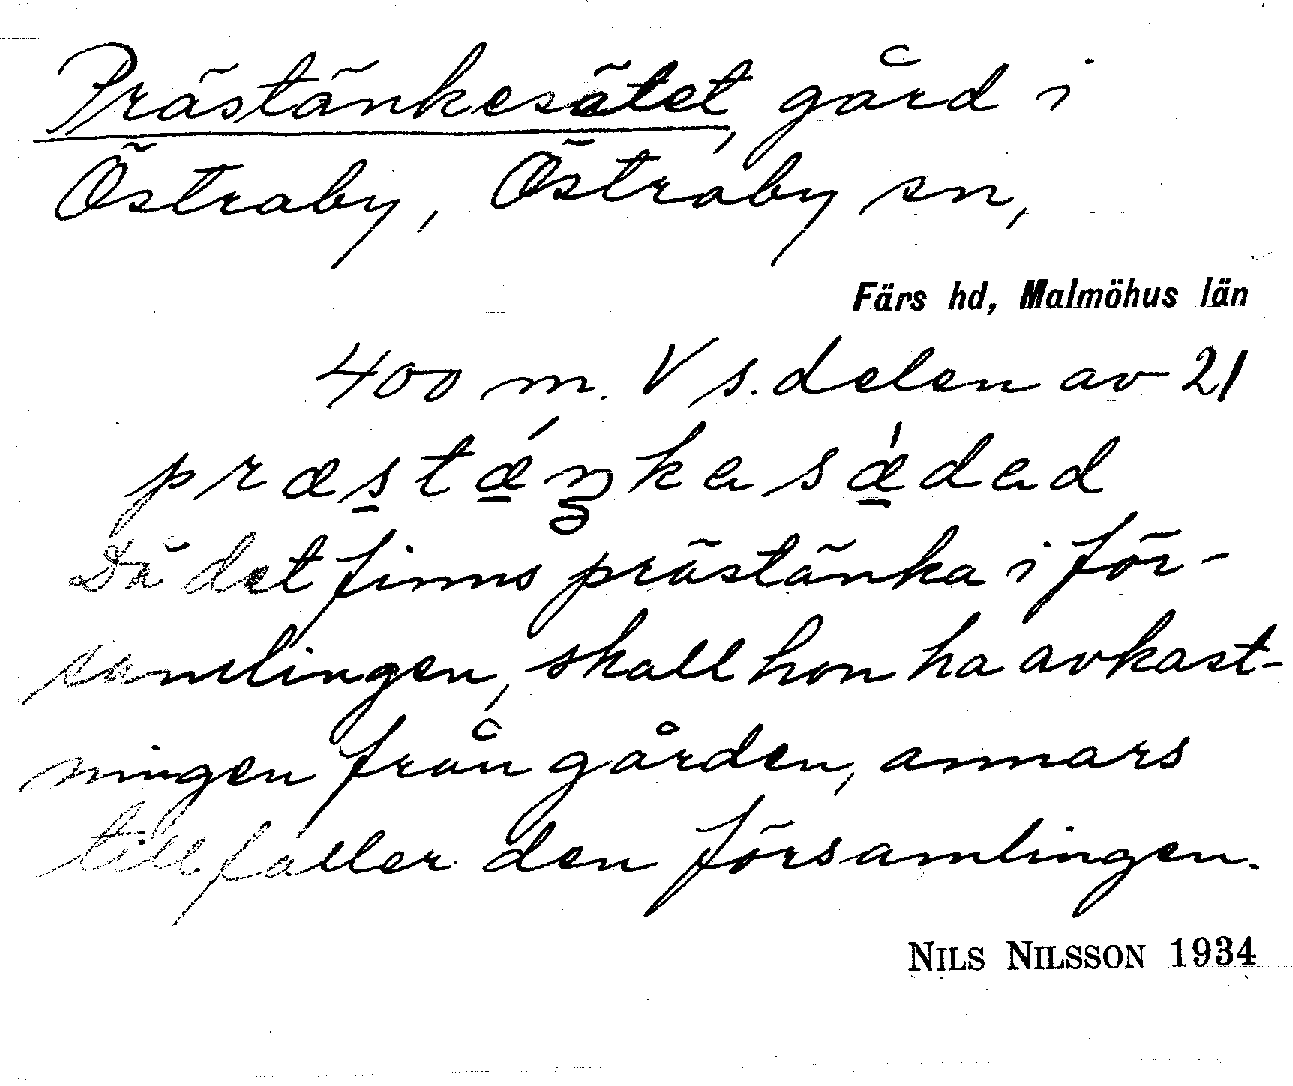 Prästänkesätet, gård i
Östraby, Östraby sn,
Färs hd, Malmöhus län
400 m. V s. delen av 21
præstǽŋkasædad
Då det finns prästänka i för-
samlingen, skall hon ha avkast-
ningen från gården, annars
tillfaller den församlingen.
NILS NILSSON 1934